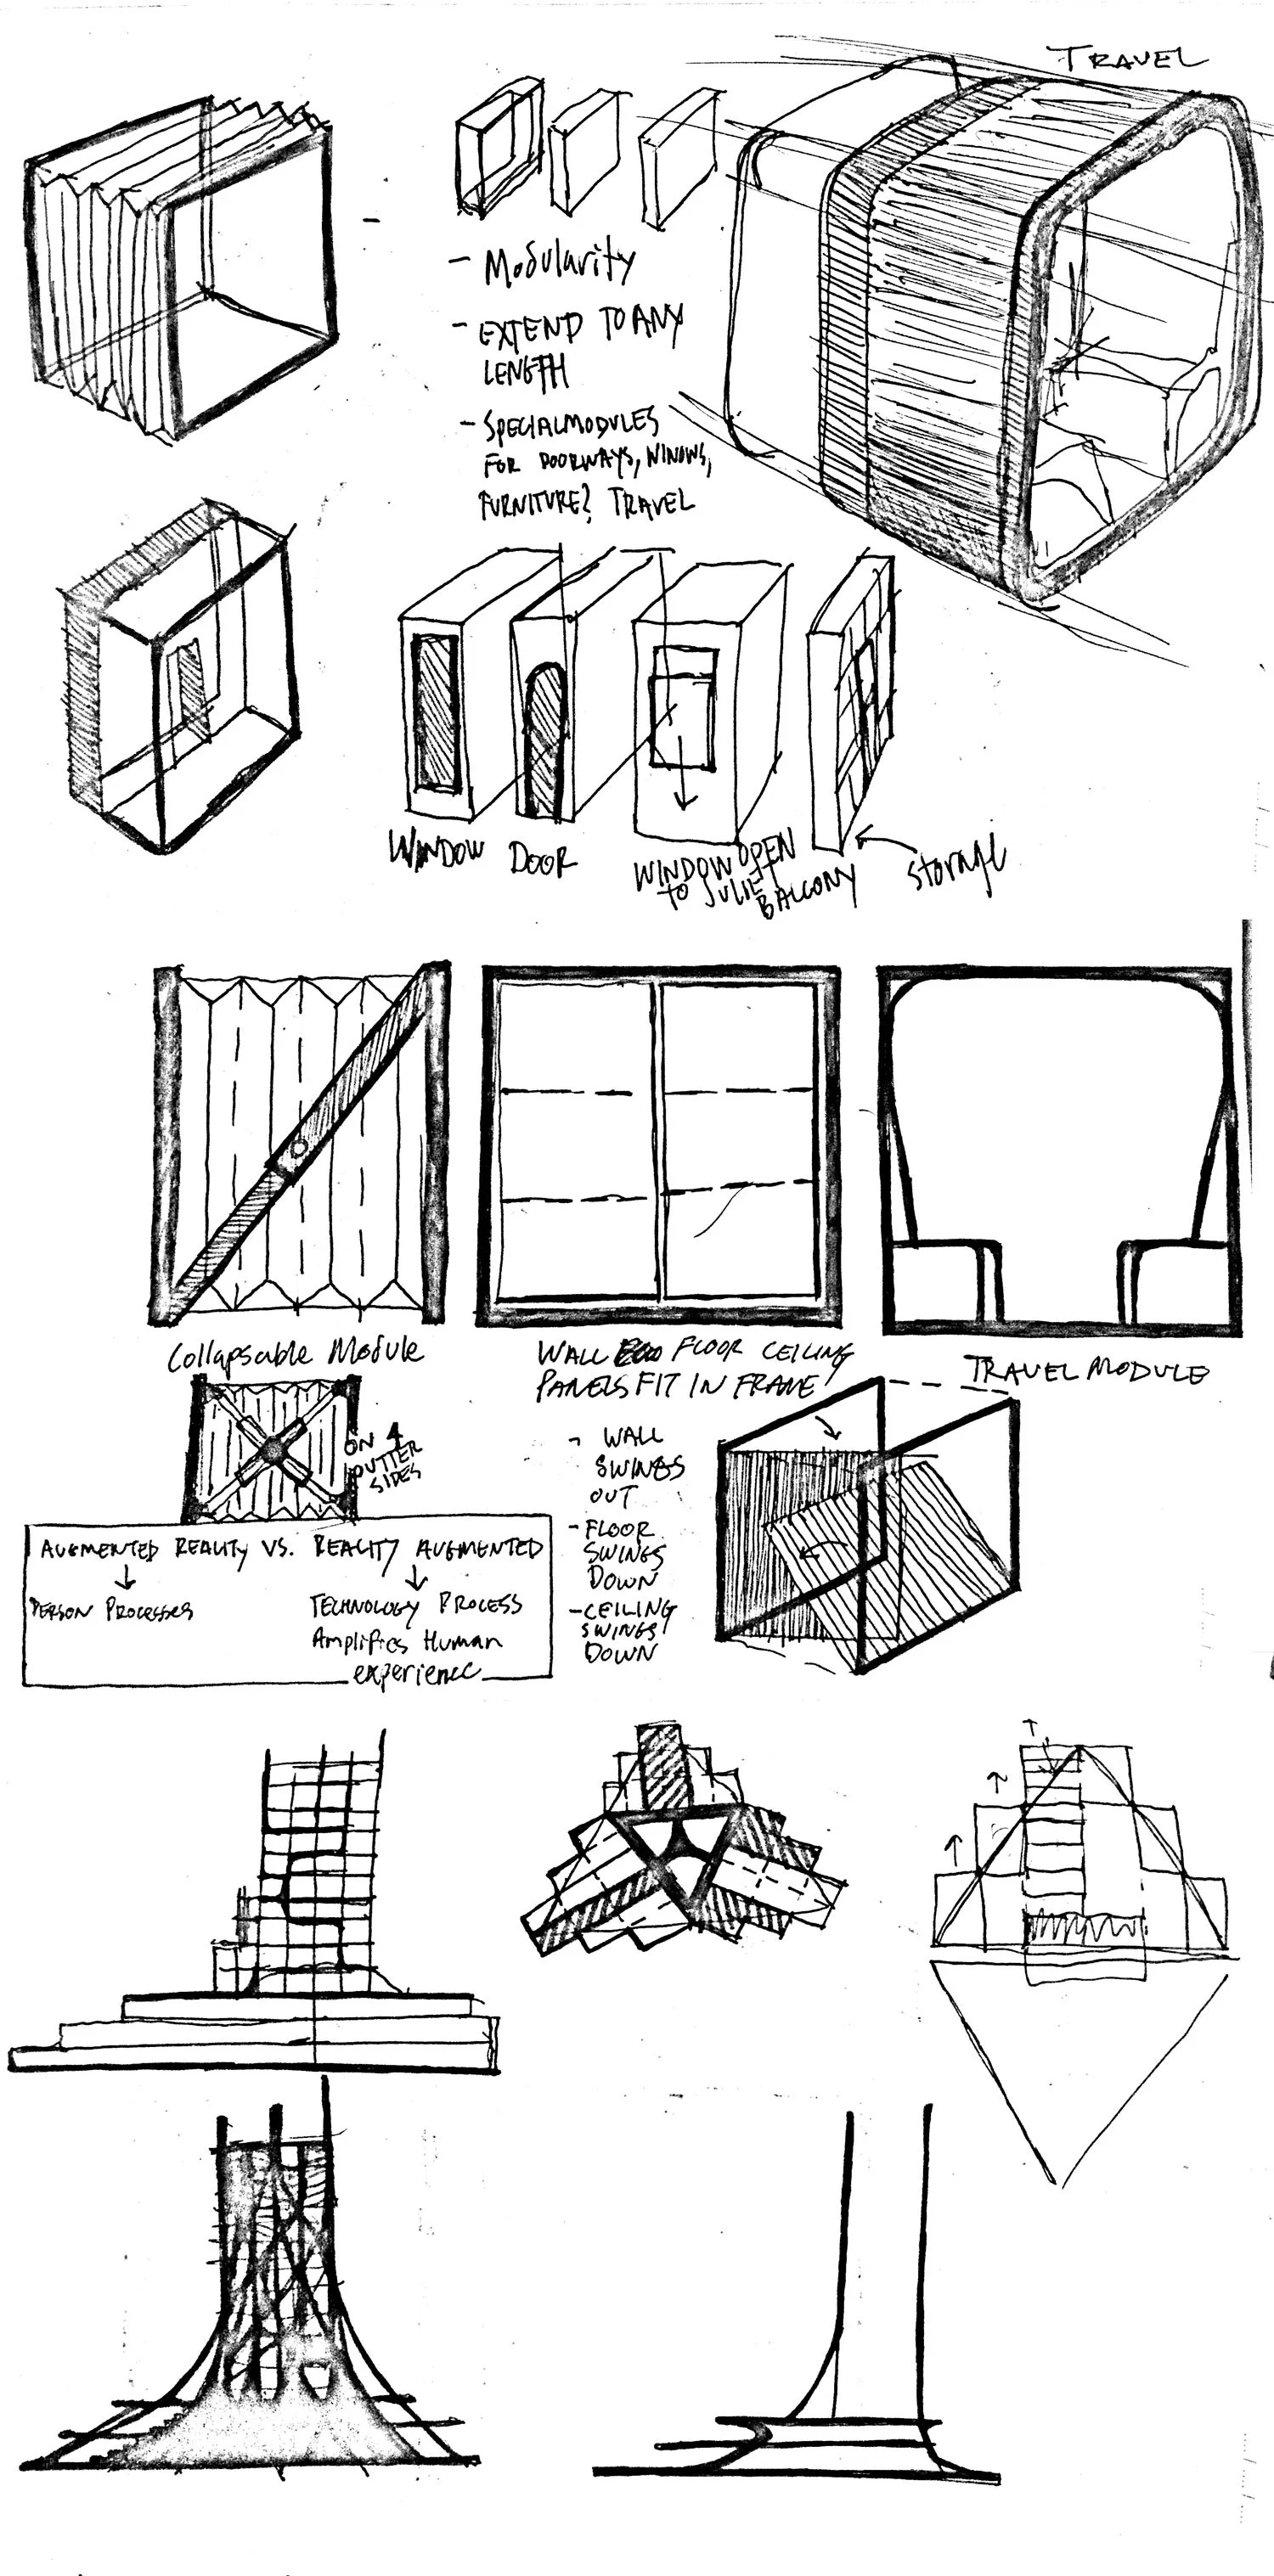 TRAVEL
- Modularity
- EXTEND TO ANY
LENGTH
- SPECIAL MODULES
FOR DOORWAYS, WINOWS,
FURNITURE? TRAVEL
WINDOW
DOOR
WINDOW OPEN
TO JULIET
BALCONY
Storage
Collapsable Module
WALL FLOOR CEILING
PANELS FIT IN FRAME
TRAVEL MODULE
ON 4
OUTTER
SIDES
- WALL
SWINGS
OUT
- FLOOR
SWINGS
DOWN
- CEILING
SWINGS
DOWN
AUGMENTED REALITY VS. REALITY AUGMENTED
PERSON PROCESSES
TECHNOLOGY PROCESS
Amplifies Human
experience